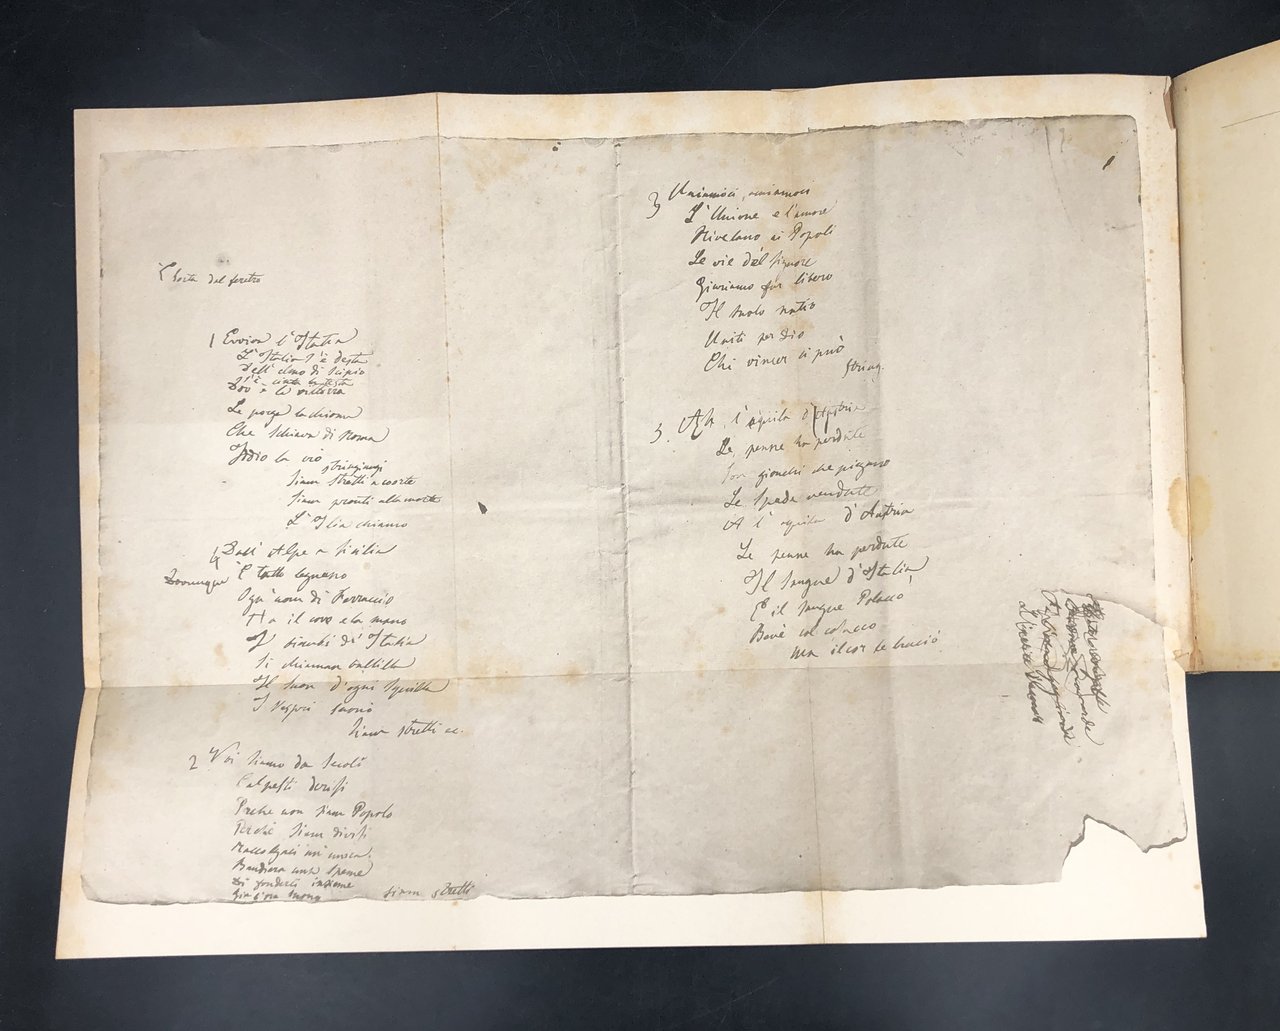 È sorta dal feretro
1 Evviva l'Italia
L'Italia s'è desta
Dell'elmo di Scipio
S'è cinta la testa
Dov'è la vittoria
Le porga la chioma
Che schiava di Roma
Iddio la creò
stringiamci
Siam stretti a coorte
Siam pronti alla morte
L'Italia chiamò
4 Dall'Alpe a Sicilia
Dovunque è tutto Legnano
Ogn'uom di Ferruccio
Ha il core e la mano
I bimbi di Italia
Si chiaman balilla
Il suon d'ogni squilla
I Vespri suonò
Siam stretti ec.
2 Noi siamo da secoli
Calpesti derisi
Perche non siam Popolo
Perchè siam divisi
Raccolgaci un'unica
Bandiera una speme
Di fonderci insieme
Già l'ora suonò siam stretti
3 Uniamoci, amiamoci
L'Unione e l'amore
Rivelano ai Popoli
Le vie del Signore
Giuriamo far libero
Il suolo natio
Uniti per Dio
Chi vincer ci può
String.
5. Ah, l'aquila d'Austria
Le penne ha perdute
Son giunchi che piegano
Le Spade vendute
A l'aquila d'Austria
Le penne ha perdute
Il Sangue d'Italia
E il Sangue Polacco
Bevè col cosacco
Ma il cor le bruciò